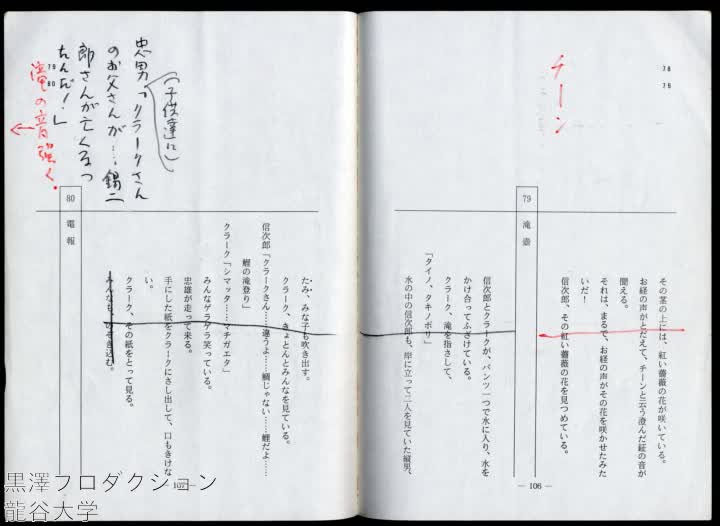 78
79
チーン
その茎の上には、紅い薔薇の花が咲いている。
お経の声がとだえて、チーンと云う澄んだ鉦の音が
聞える。
それは、まるで、お経の声がその花を咲かせたみた
いだ！
信次郎、その紅い薔薇の花を見つめている。
79 滝壺
信次郎とクラークが、パンツ一つで水に入り、水を
かけ合ってふざけている。
クラーク、滝を指さして、
「タイノ、タキノボリ」
水の中の信次郎も、岸に立って二人を見ていた縦男、
— 106 —
たみ、みな子も吹き出す。
クラーク、きょとんとみんなを見ている。
信次郎「クラークさん……違うよ……鯛じゃない……鯉だよ……
鯉の滝登り」
クラーク「シマッタ……マチガエタ」
みんなゲラゲラ笑っている。
忠雄が走って来る。
手にした紙をクラークにさし出して、口もきけな
い。
クラーク、その紙をとって見る。
みんなも、のぞき込む。
80 電報
— 107 —
(子供達に)
忠男「クラークさん
のお父さんが…、錫二
郎さんが亡くなっ
たんだ！」
79
80
滝の音強く。
黒澤プロダクション
龍谷大学